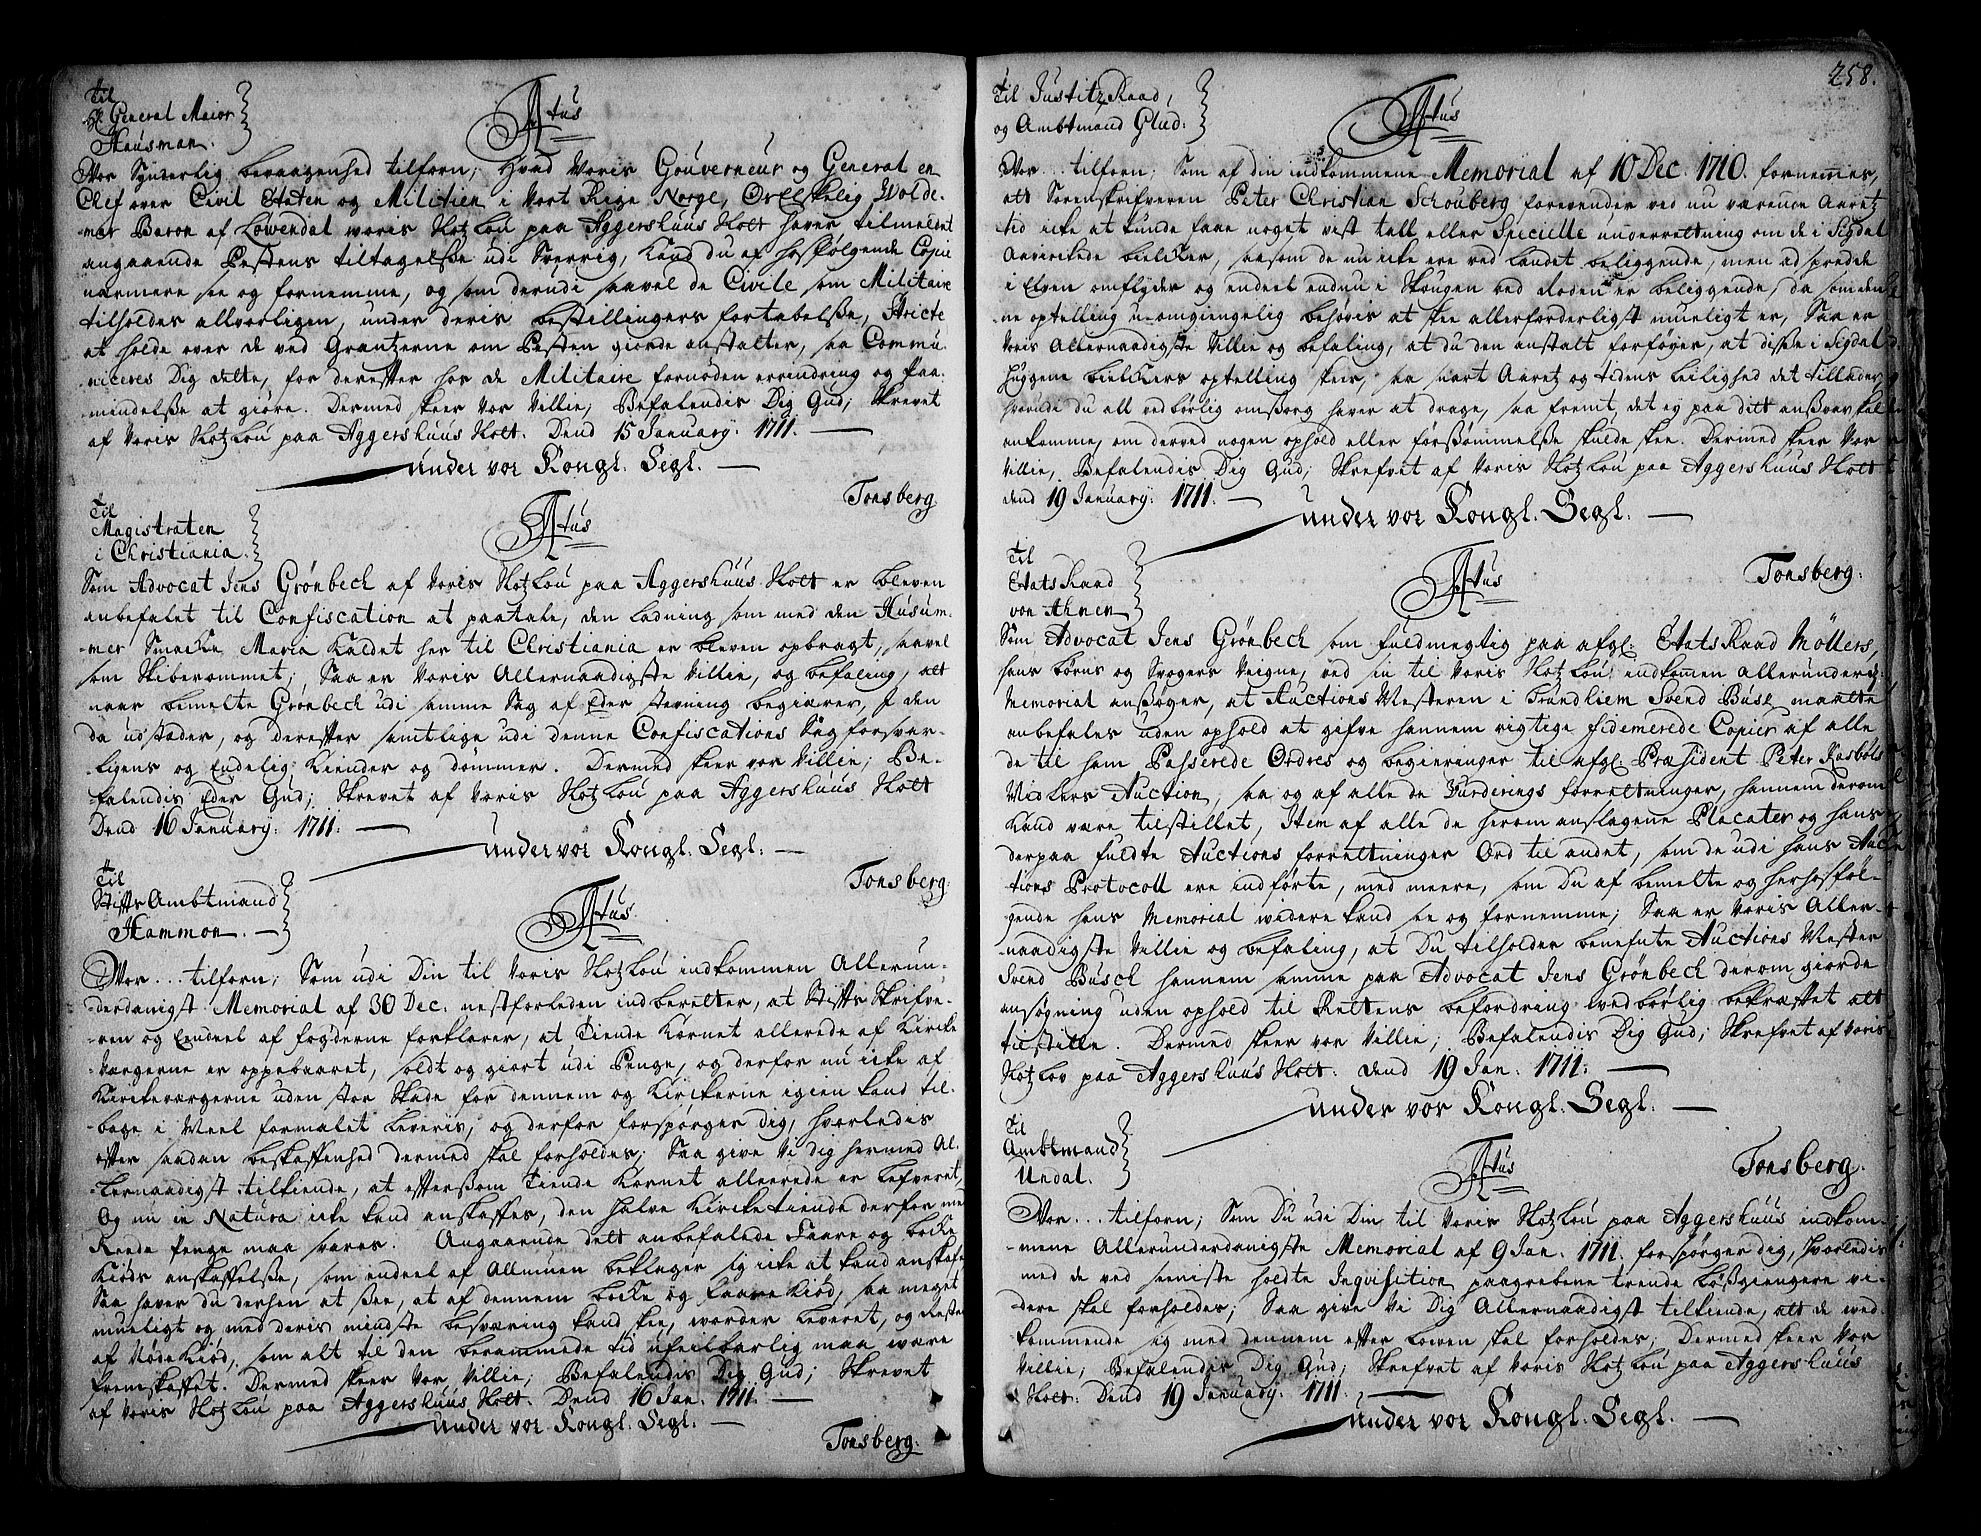 Til
Hr General Maior
Hausman.
Atus
Vor Synderlig bevaagenhed tilforn; Hvad Voris Gouverneur og General en
Chef over Civil Etaten og Militien i Vort Rige Norge, Os Elskelig Wolde-
mar Baron af Løwendal woris Slotzlou paa Aggershuus Slott haver tilmeldet
angaaende Pestens tiltagelße udi Sverrig, Kand du af hosfølgende Copie
nærmere see og fornemme, og som derudi saavel de Civile som Militaire
tilholdes allvorligen, under deris bestillingers fortabelße, Stricte
at holde over de ved Grantzerne om Pesten giorde anstalter, saa Commu-
niceres Dig dette, for derefter hos de Militaire fornøden erindring og Paa-
mindelße at giøre. Dermed skeer Vor Villie; Befalendis Dig Gud; Skrevet
af Voris Slotzlou paa Aggershuus Slott. Dend 15 January: 1711.
under vor Kongl. Segl.
Tonsberg
Til
Magistraten
i Christiania.
Atus
Som Advocat Jens Grönbech af Voris Slotzlou paa Aggershuus Slott er bleven
anbefalet til Confiscation at paatale, den ladning som med den Husum-
mer Smacke Maria Kaldet her til Christiania er bleven opbragt, saavel
som Skiberommet; Saa er Voris Allernaadigste Villie, og befaling, att
naar bemelte Grönbech udi samme Sag af Eder stevning begiærer, I den
da udstæder, og derefter samtlige udi denne Confiscations Sag forsvar-
ligens og Endelig Kiender og dømmer. Dermed skeer vor Villie; Be-
falendis Eder Gud; Skrevet af Voris Slotzlou paa Aggershuus Slott
Dend 16 January: 1711.
under vor Kongl. Segl.
Tonsberg.
Til
Stiffts Ambtmand
Hammon.
Atus
Vor... tilforn; Som udi Din til Voris Slotzlou indkommen Allerun-
derdanigst Memorial af 30 Dec: nestforleden indberetter, at Stiffts Skrifve-
ren og Eendeel af fogderne forklarer, at Tiende Kornet allerede af Kirke
Værgerne er oppebaaret, soldt og giort udi Penge, og derfor nu icke af
Kirkeværgerne uden stor Skade for dennem og Kirkerne igien kand til-
bage i Meel formalet leveris, og derfor forspørger dig, hvorledis
efter saadan beskaffenhed dermed skal forholdes; Saa give Vi dig hermed Al-
lernaadigst tilkiende, at eftterßom Tiende Kornet allerede er lefveret,
Og nu in Natura icke kand anskaffes, den halve Kirketiende derfor med
Reede Penge maa svares. Angaaende dett anbefalede Faare og bocke
Kiøds anskaffelße, som endeel af Allmuen beklager sig icke at kand anskaffe
Saa haver du derhen at see, at af dennem bocke og faare Kiød, saa meget
mueligt og med deris mindste besværing kand skee, worder leveret, og Resten
af Nødekiød, som alt til den berammede tid ufeilbarlig maa være
fremskaffet. Dermed skeer Vor Villie; Befalendis Dig Gud; Skrevet
af Voris Slotzlou paa Aggershuus Slott. Dend 16 Jan. 1711.
under vor Kongl. Segl.
Tonsberg.
258.
Til Justitz Raad,
og Ambtmand Glud.
Atus
Vor... tilforn; Som af din indkommene Memorial af 10 Dec. 1710. fornemmes,
att Sorenskrifveren Peter Christian Schouberg forevender ved nu værende Aaretz
tid icke at kunde faae noget vist tall eller Specielle underrettning om de i Sigdal
Aavirckede bielcker, saasom de nu icke ere ved landet beliggende, men adspredde
i Elven omflyder og endeel endnu i Skougen ved Roden er beliggende, da som den-
ne optelling u-omgiengelig behøvis at skee allerforderligst mueligt er, Saa er
Voris Allernaadigste Villie og befaling, at du den anstalt forføyer, at diße i Sigdal
huggene bielckers optelling skeer, saa snart Aaretz og tidens leilighed det tillader,
hvorudi du all vedbørlig omßorg haver at drage, saa fremt det ey paa ditt anßvar skal
ankomme, om derved nogen ophold eller forßømmelße skulde skee. Dermed skeer Vor
Villie, Befalendis Dig Gud; Skrefvet af Voris Slotzlou paa Aggershuus Slott
dend 19 January: 1711.
under vor Kongl. Segl.
Tonsberg.
Til
Etats Raad
von Ahnen
Atus
Som Advocat Jens Grönbech som fuldmegtig paa afgl. Etats Raad Möllers,
hans børns og Svogers Veigne, ved in til Voris Slotzlou indkomen allerunderd:
Memorial anßøger, at Auctions Mesteren i Trundhiem Svend Busk maatte
anbefales uden ophold at gifve hannem rigtige fidemerede Copier af alle
de til ham Passerede Ordres og begieringer til afgl. Præsident Peter Rasbøls
Midlers Auction, saa og af alle de Vurderings forrettninger, hannem derom
Kand være tilstillet, Item af alle de herom anslagene Placater og hans
derpaa fuldte Auctions forrettninger Ord til andet, som de udi hans Auc-
tions Protocoll ere indførte, med meere, som Du af bemelte og herhosføl-
gende hans Memorial widere kand see og fornemme; Saa er Voris Aller-
naadigste Villie og befaling, at Du tilholder benefnte Auctions Mester
Svend Busch hannem samme paa Advocat Jens Grönbech derom giorde
ansøgning uden ophold til Rettens befordring wedbørlig bekræfftet att
tilstille. Dermed skeer vor Villie; Befalendis Dig Gud; Skrefvet af Voris
Slotzlov paa Aggershuus Slott. dend 19 Jan. 1711.
under vor Kongl. Segl.
Tonsberg.
Til
Ambtmand
Undal.
Atus
Vor... tilforn; Som Du udi Din til Voris Slotzlou paa Aggershuus indkom-
mene Allerunderdanigste Memorial af 9 Jan. 1711. forspørger dig, hvorledis
med de ved seeniste holdte Inquisition paagrebene trende lößgiengere vi-
dere skal forholdes; Saa give Vi Dig Allernaadigst tilkiende, att de wed-
kommende sig med dennem efter Lowen skal forholde; Dermed skeer Vor
Villie; Befalendes Dig Gud; Skrefvet af Voris Slotzlou paa Aggershuus
Slott. Dend 19 January: 1711.
under vor Kongl. Segl.